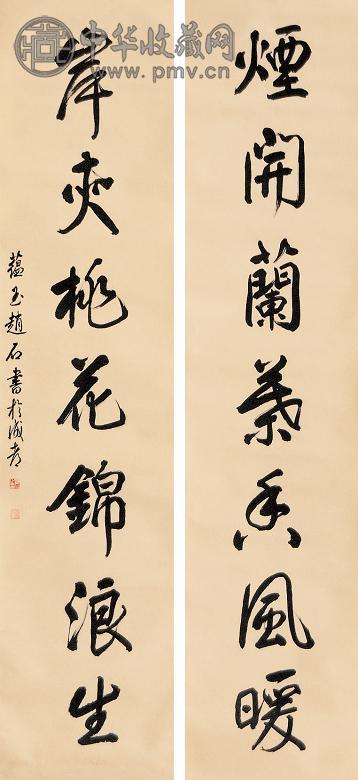 煙開蘭葉香風暖
岸夾桃花錦浪生
蘊玉趙石書於成都
中华收藏网
www.pmv.cn